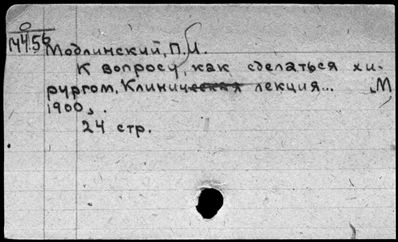 О
14456
Модлинский, П.И.
К вопросу, как сделаться хи-
рургом. Клиническая лекция... М
1900, .
24 стр.